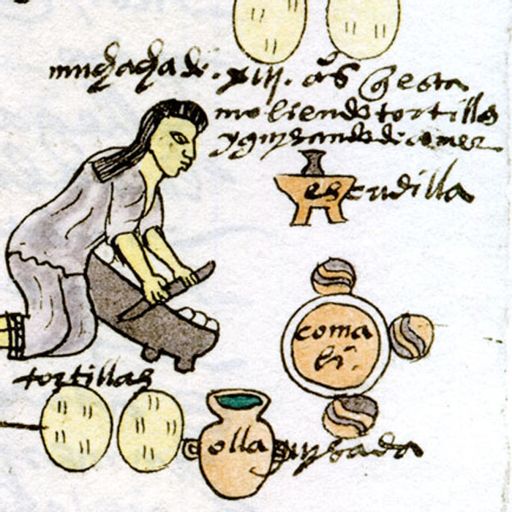 muchacha de .xiii. aºs q̃ esta
moliendo tortillas
y guisando de comer
escudilla
coma
li.
tortillas
olla guisada